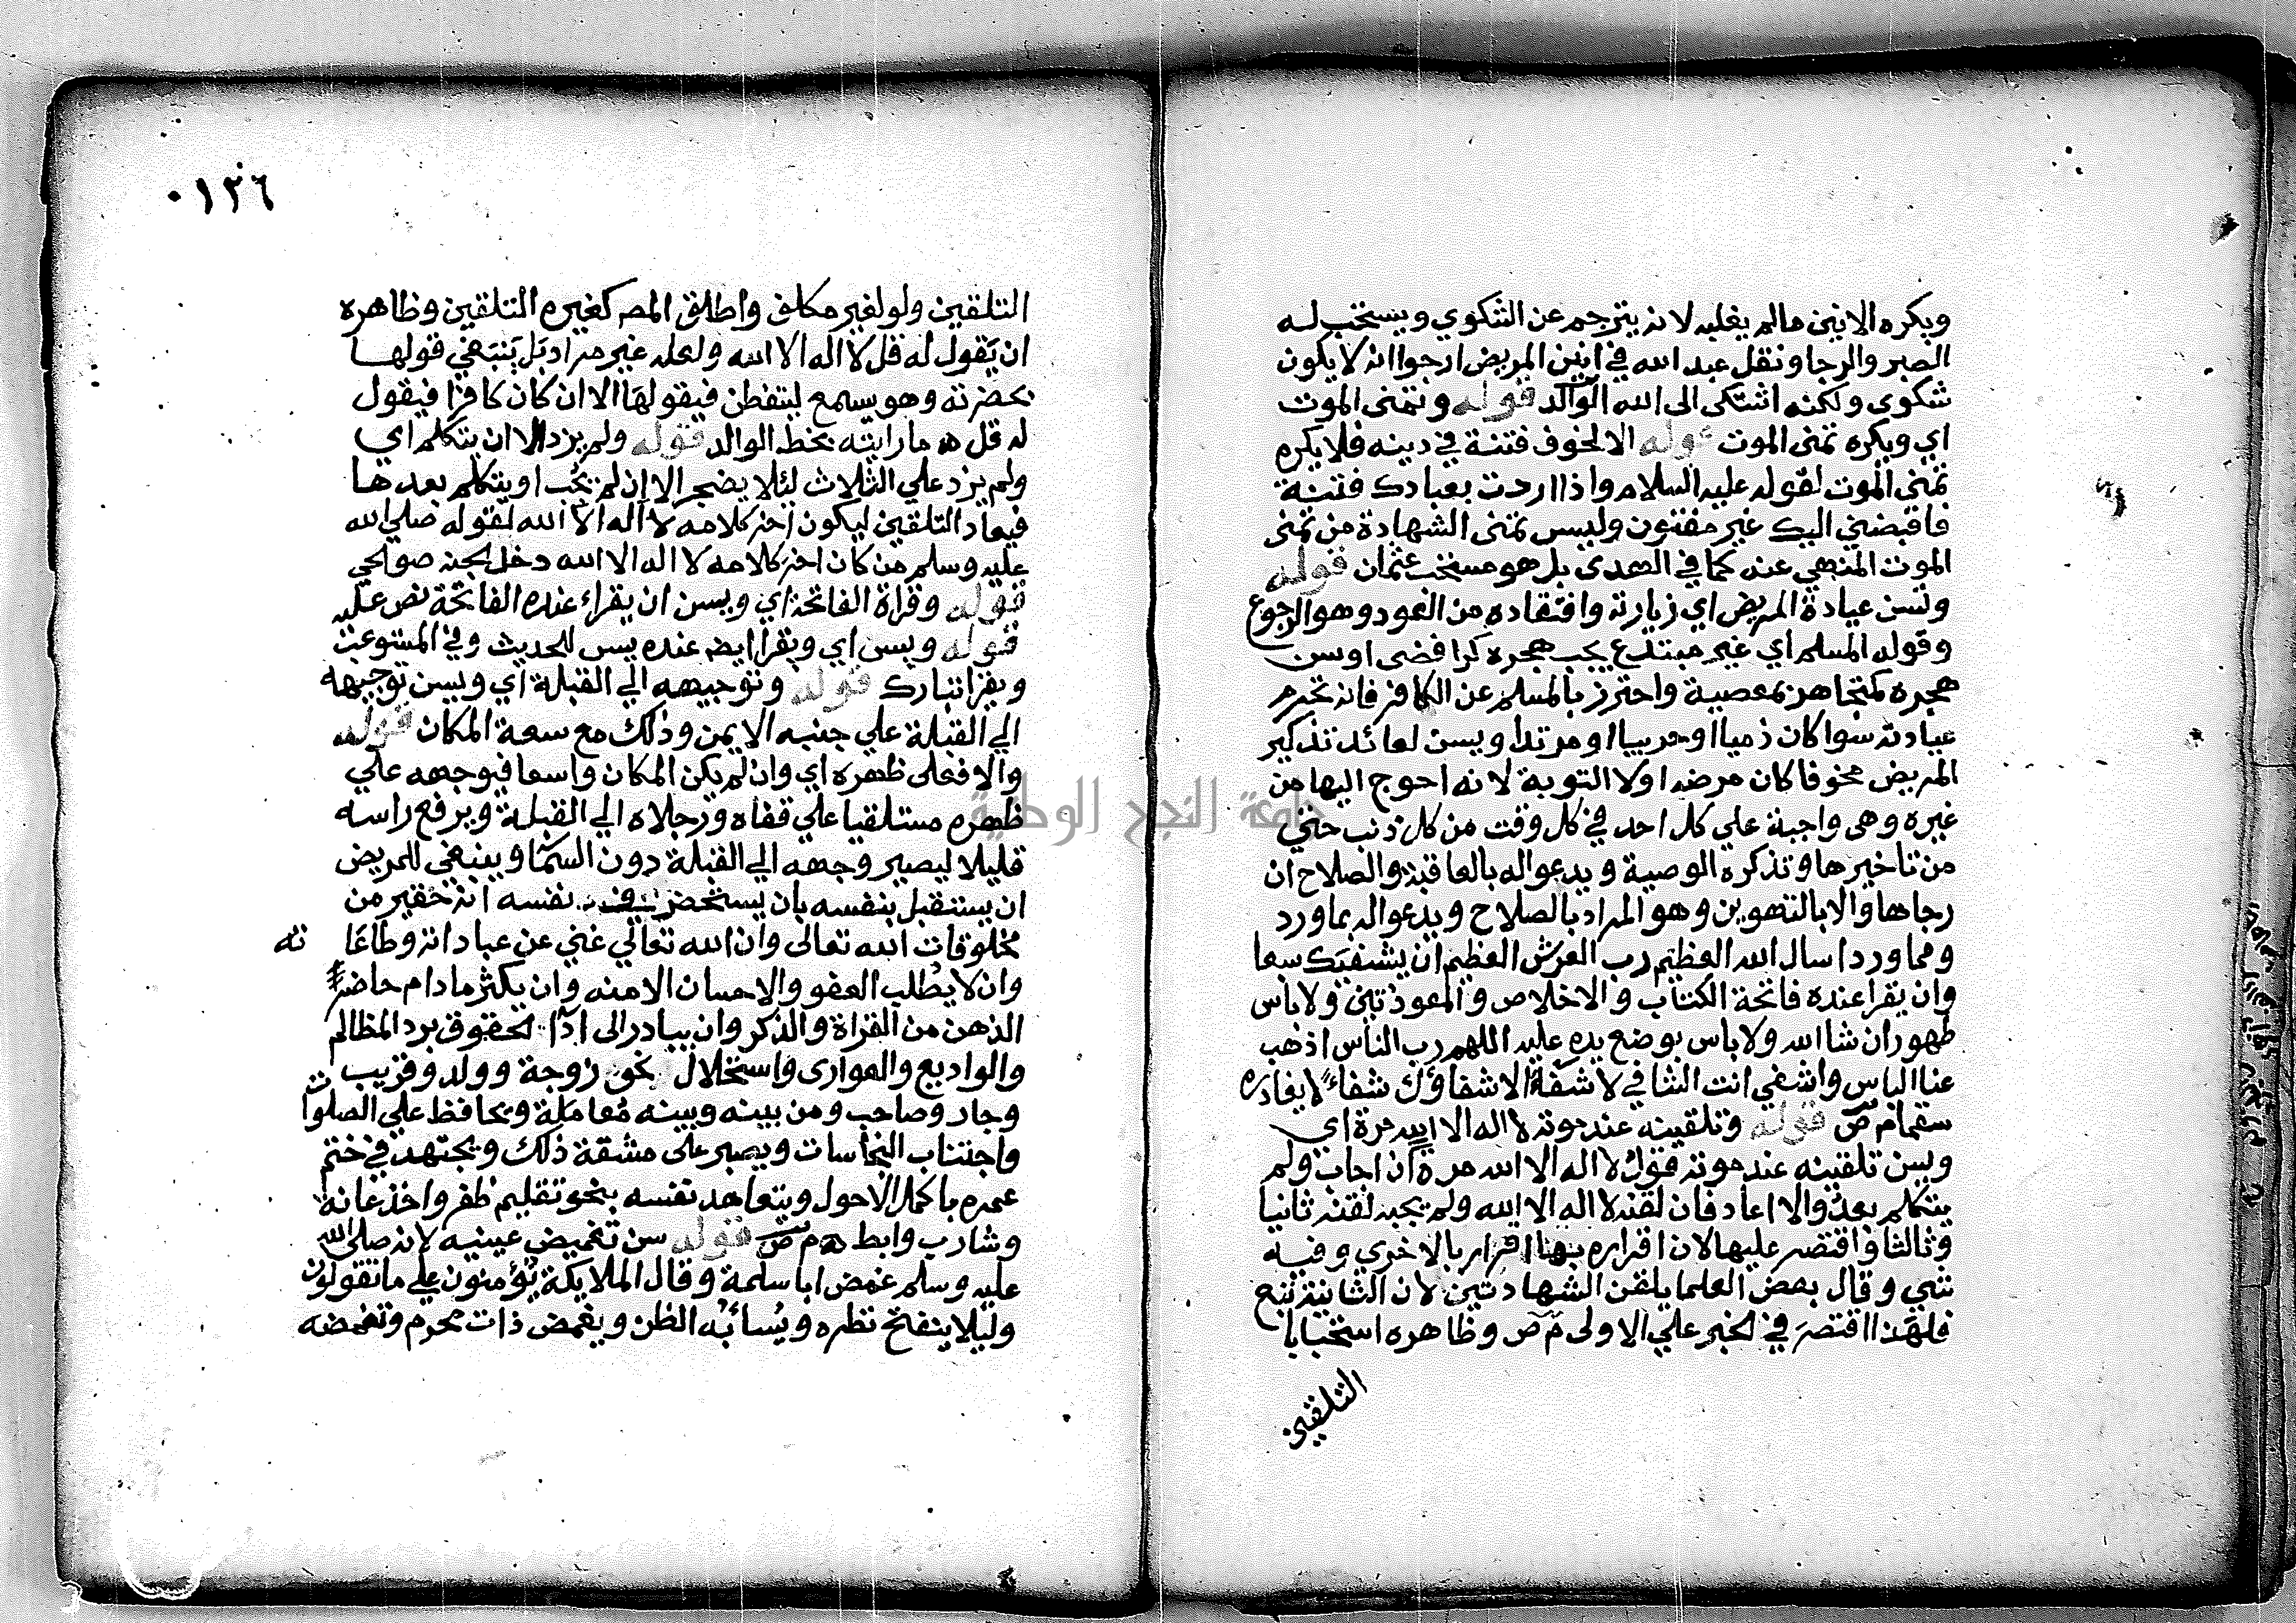 ويكره الانين مالم يغلبه لانه يترجم عن الشكوي ويستحب له
الصبر والرجا ونقل عبد الله في انين المريض ارجوا انه لا يكون
شكوى ولكنه اشتكى الى الله الوالد قوله وتمنى الموت
اي ويكره تمنى الموت قوله الا لخوف فتنة في دينه فلا يكره
تمنى الموت لقوله عليه السلام واذا اردت بعبادك فتنة
فاقبضني اليك غير مفتون وليس تمنى الشهادة من تمنى
الموت المنهي عنه كما في الهدى بل هو مستحب عثمان قوله
وتسن عيادة المريض اي زيارته وافتقاده من العود وهو الرجوع
وقوله المسلم اي غير مبتدع يجب هجره كرافضى اوسن
هجره كمتجاهر بمعصية واحترز بالمسلم عن الكافر فانه تحرم
عيادته سوا كان ذميا او حربيا او مرتدا ويسن لعائد تذكير
المريض مخوفا كان مرضه اولا التوبة لانه احوج اليها من
غيره وهى واجبة علي كل احد في كل وقت من كل ذنب حتي
من تاخيرها وتذكره الوصية ويدعواله بالعافية والصلاح ان
رجاها والا بالتهوين وهو المراد بالصلاح ويدعواله بما ورد
ومما ورد اسال الله العظيم رب العرش العظيم ان يشفيك سبعا
وان يقرا عنده فاتحة الكتاب والاخلاص والمعوذتين ولا باس
طهور ان شا الله ولا باس بوضع يده عليه اللهم رب الناس اذهب
عنا الباس واشفي انت الشافي لا شفاء الا شفاؤك شفاءً لا يغادر
سقما م ص قوله وتلقينه عند موته لا اله الا الله مرة اي
ويسن تلقينه عند موته قول لا اله الا الله مرة ان اجاب ولم
يتكلم بعد والا اعاد فان لقنه لا اله الا الله ولم يجبه لقنه ثانيا
وثالثا واقتصر عليها لان اقراره بها اقرار بالاخري وفيه
شي وقال بعض العلما يلقن الشهادتين لان الثانية تبع
فلهذا اقتصر في الخبر علي الاولى م ص وظاهره استحبابا
التلقين
٠١٢٦
التلقين ولو لغير مكلف واطلق المص كغيره التلقين وظاهره
ان يقول له قل لا اله الا الله ولعله غير مراد بل ينبغي قولها
بحضرته وهو يسمع ليتفطن فيقولها الا ان كان كافرا فيقول
له قل ه ما رايته بخط الوالد قوله ولم يزد الا ان يتكلم اي
ولم يزد علي الثلاث لئلا يضجر الا ان لم يجب او يتكلم بعدها
فيعاد التلقين ليكون اخر كلامه لا اله الا الله لقوله صلي الله
عليه وسلم من كان اخر كلامه لا اله الا الله دخل الجنة صوالحي
قوله وقراة الفاتحة اي ويسن ان يقراء عنده الفاتحة نص عليه
قوله ويسن اي ويقرا ايض عنده يس للحديث وفي المستوعب
ويقرا تبارك قوله وتوجيهه الي القبلة اي ويسن توجيهه
الي القبلة علي جنبه الايمن وذلك مع سعة المكان قوله
والا فعلى ظهره اي وان لم يكن المكان واسعا فيوجهه علي
ظهره مستلقيا علي قفاه ورجلاه الي القبلة ويرفع راسه
قليلا ليصير وجهه الي القبلة دون السما وينبغي للمريض
ان يستقبل بنفسه بان يستحضر في نفسه انه حقير من
مخلوقات الله تعالى وان الله تعالي غني عن عباداته وطاعا ته
وان لا يطلب العفو والاحسان الا منه وان يكثر ما دام حاضر
الذهن من القراة والذكر وان يبادر الى ادا الحقوق برد المظالم
والوادیع والعوارى واستحلال نحو زوجة وولد وقريب
وجار وصاحب ومن بينه وبينه معاملة ويحافظ علي الصلوات
واجتناب النجاسات ويصبر على مشقة ذلك ويجتهد في ختم
عمره باكمل الاحول ويتعاهد نفسه بنحو تقليم ظفر واخذ عانة
وشارب وابط ه م ص قوله سن تغميض عينيه لانه صلى الله
عليه وسلم غمض ابا سلمة وقال الملايكة يؤمنون علي ما تقولون
وليلا ينفتح نظره ويساء به الظن ويغمض ذات محرم وتغمضه
جامعة النجاح الوطنية